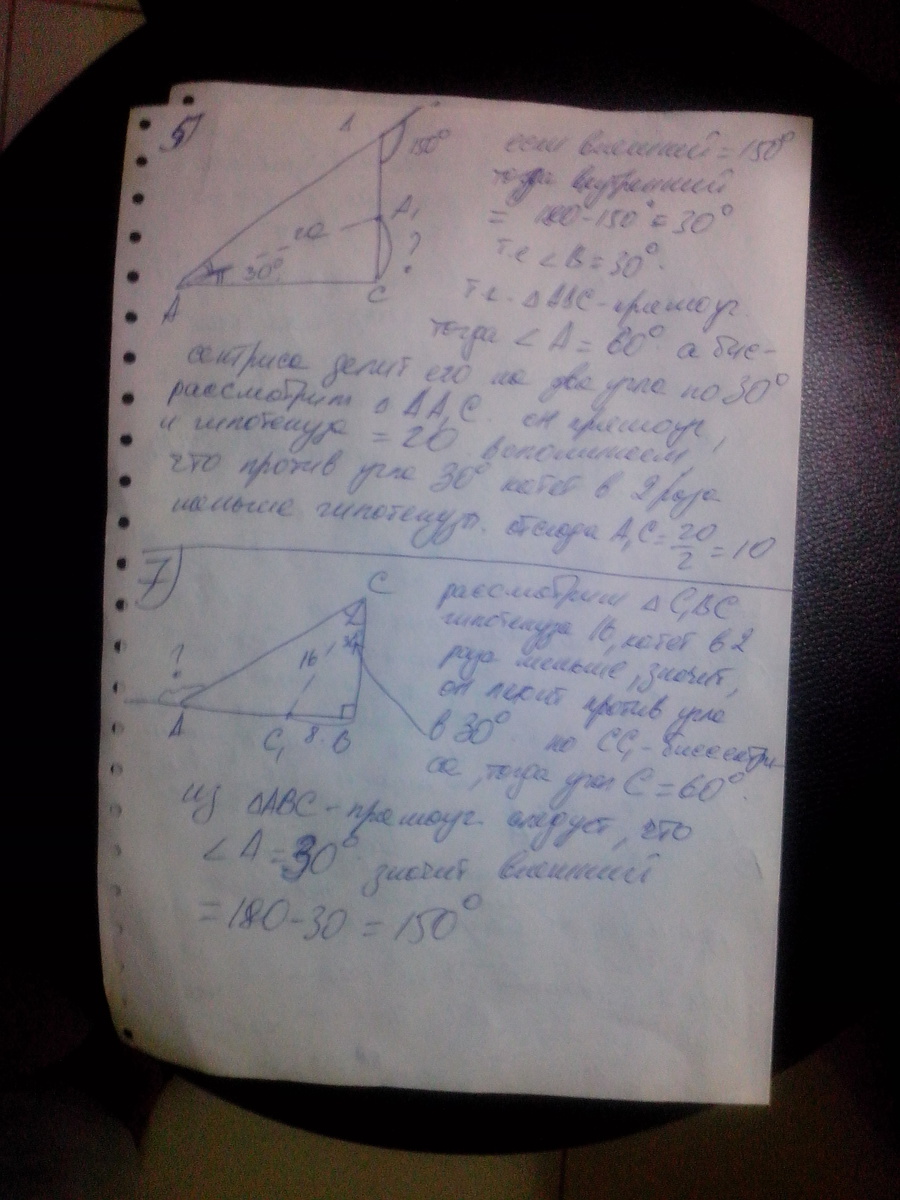 5)
150°
A₁
20
?
30°
A
C
если внешний = 150°
тогда внутренний
= 180-150° = 30°
т.е ∠B = 30°.
т.к. △ABC - прямоуг.
тогда ∠A = 60° а бис-
сектриса делит его на два угла по 30°
рассмотрим △ AA₁C. он прямоуг,
и гипотенуза = 20 вспоминаем,
что против угла 30° катет в 2 раза
меньше гипотенузы. отсюда A₁C = 20/2 = 10
7)
C
?
16
A
C₁
8
B
рассмотрим △ C₁BC
гипотенуза 16, катет в 2
раза меньше, значит,
он лежит против угла
в 30°. но CC₁ - биссектри-
са, тогда угол C = 60°.
из △ABC - прямоуг. следует, что
∠A = 30° значит внешний
= 180-30 = 150°